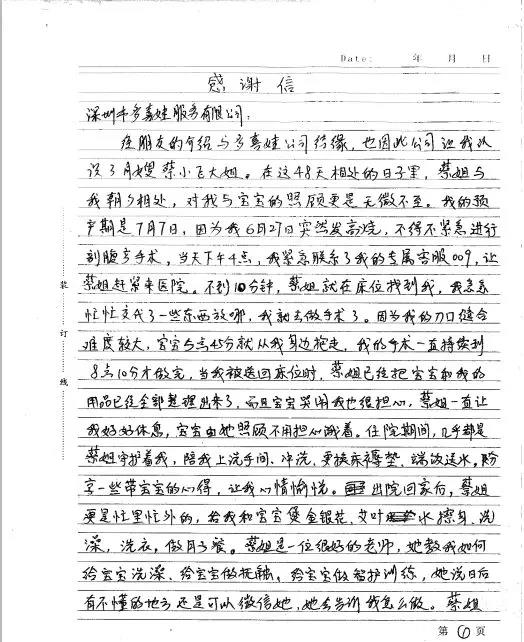 Date: 年 月 日
感谢信
深圳市多喜娃服务有限公司:
经朋友的介绍与多喜娃公司结缘,也因此公司让我认
识了月嫂蔡小飞大姐。在这48天相处的日子里,蔡姐与
我朝夕相处,对我与宝宝的照顾更是无微不至。我的预
产期是7月7日,因为我6月27日突然发高烧,不得不紧急进行
剖腹产手术,当天下午4点,我紧急联系了我的专属客服009,让
蔡姐赶紧来医院。不到10分钟,蔡姐就在床位找到我,我急急
忙忙交代了一些东西放哪,我就去做手术了。因为我的刀口缝合
难度较大,宝宝5点45分就从我身边抱走,我的手术一直持续到
8点10分才做完,当我被送回床位时,蔡姐已经把宝宝和我的
用品已经全部整理出来了,而且宝宝哭闹我也很担心,蔡姐一直让
我好好休息,宝宝由她照顾不用担心饿着。住院期间,几乎都是
蔡姐守护着我,陪我上洗手间、冲洗,更换床褥垫、端饭送水,分
享一些带宝宝的心得,让我心情愉悦。出院回家后,蔡姐
更是忙里忙外的,给我和宝宝煲金银花、艾叶水擦身、洗
澡,洗衣,做月子餐。蔡姐是一位很好的老师,她教我如何
给宝宝洗澡、给宝宝做抚触、给宝宝做智护训练,她说日后
有不懂的地方还是可以微信她,她会告诉我怎么做。蔡姐
装 订 线
第 6 页